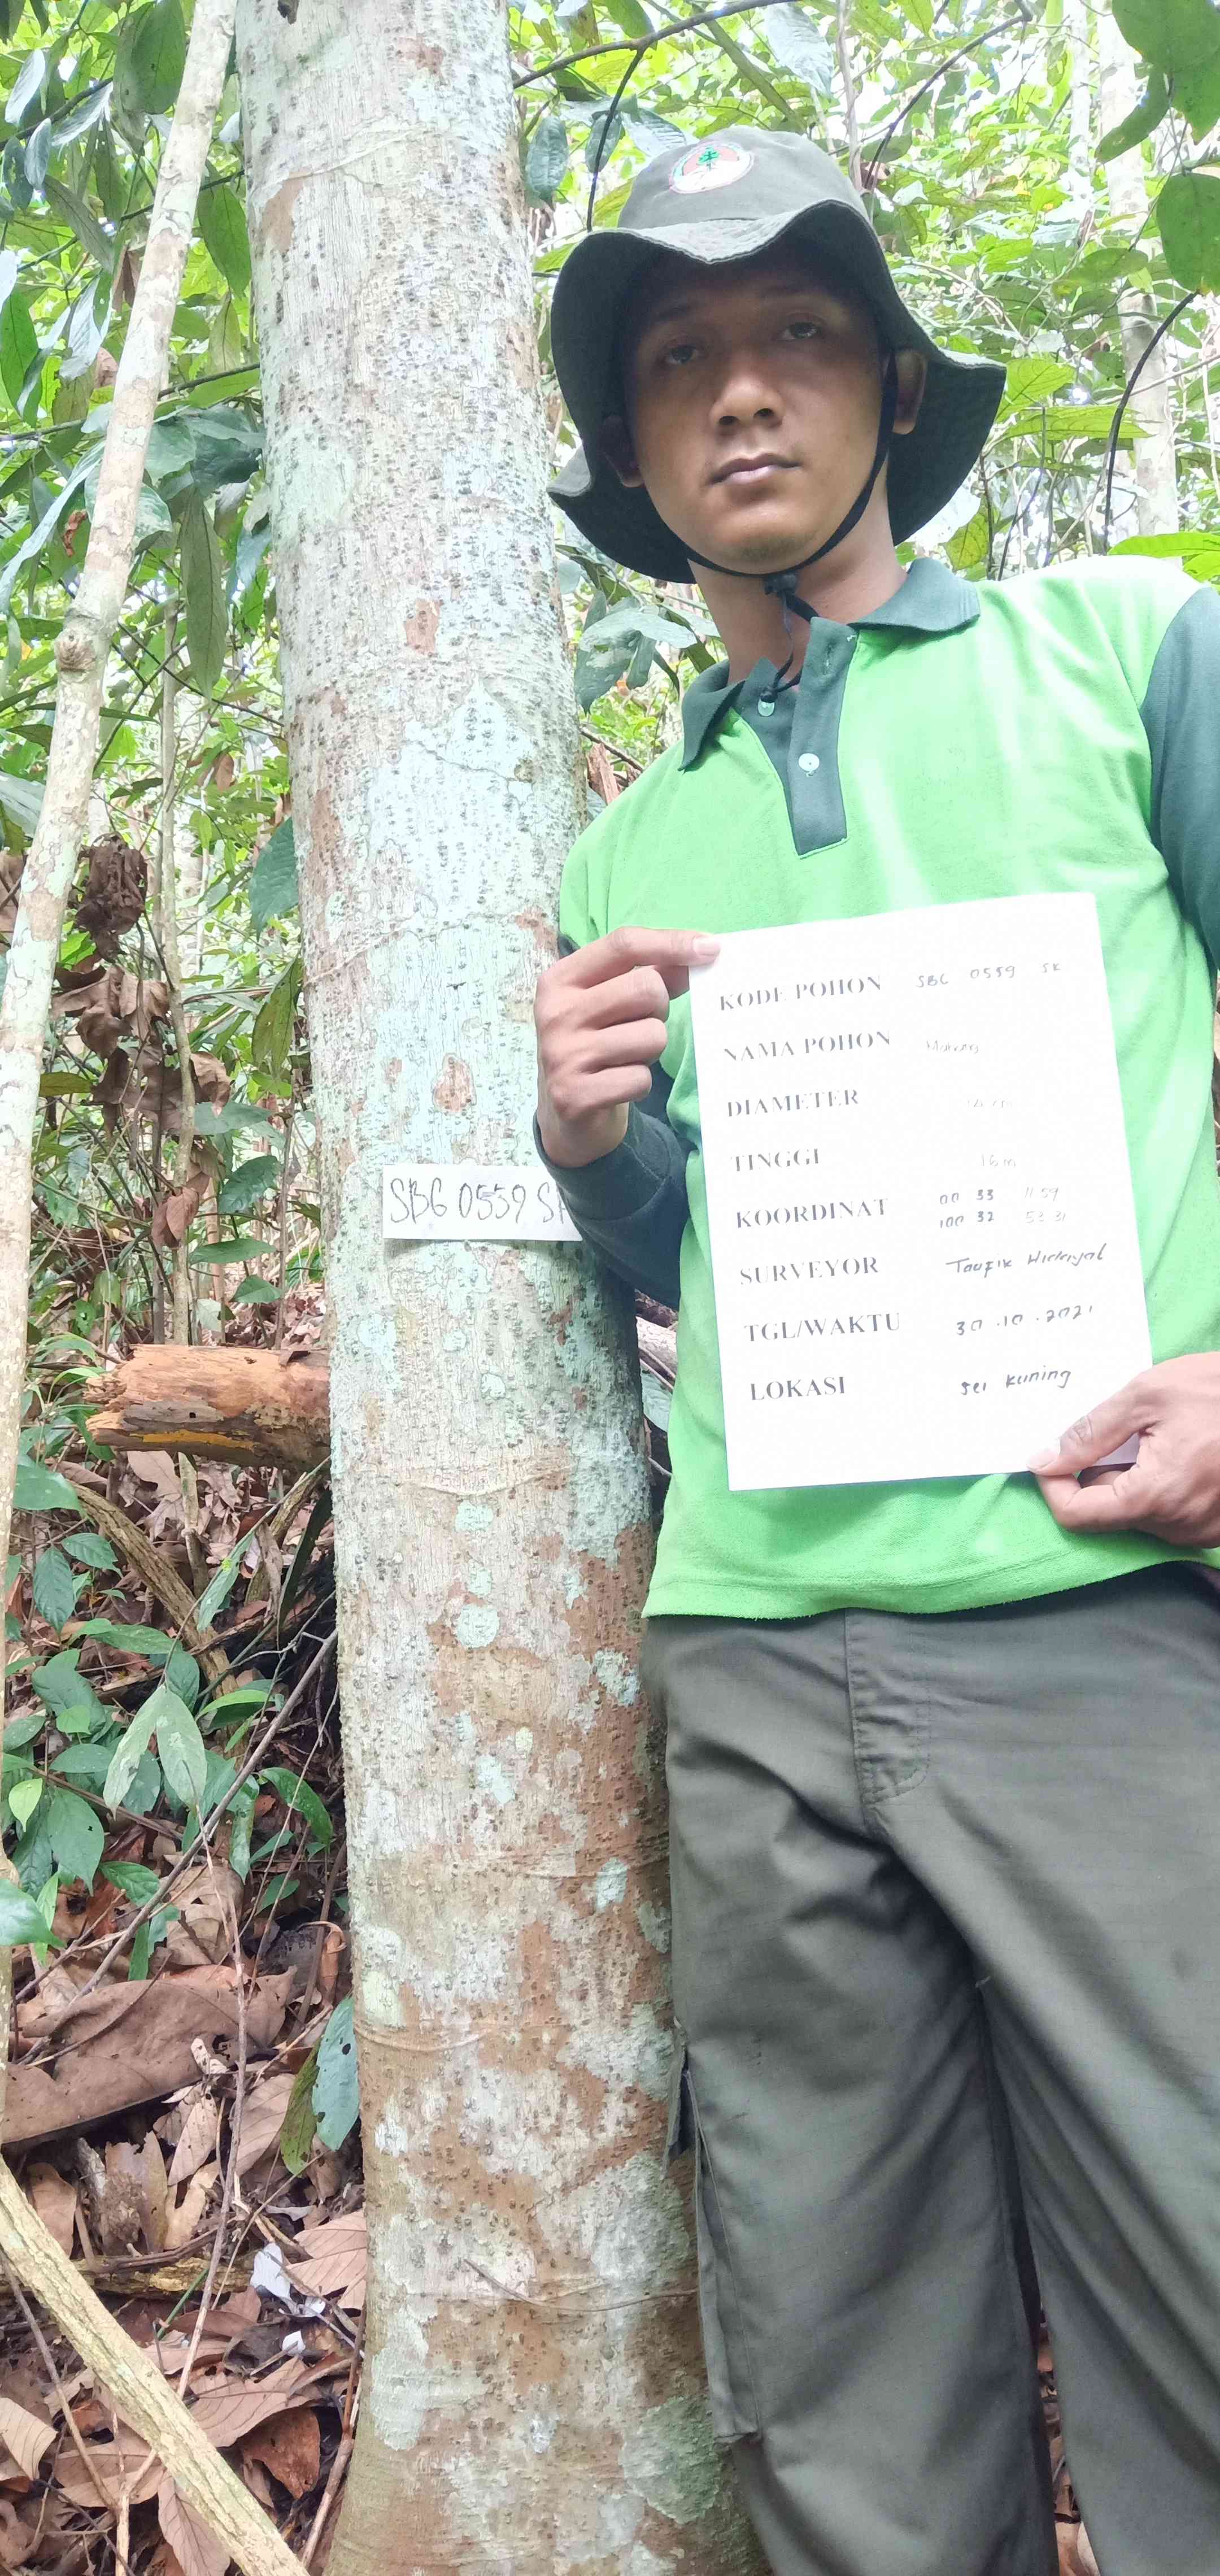 KODE POHON SBG 0559 SK
NAMA POHON
DIAMETER
TINGGI 16 m
KOORDINAT 00 33 11 59
100 32 53 31
SURVEYOR Taufik Hidayat
TGL/WAKTU 30.10.2021
LOKASI sei kuning
SBG 0559 S